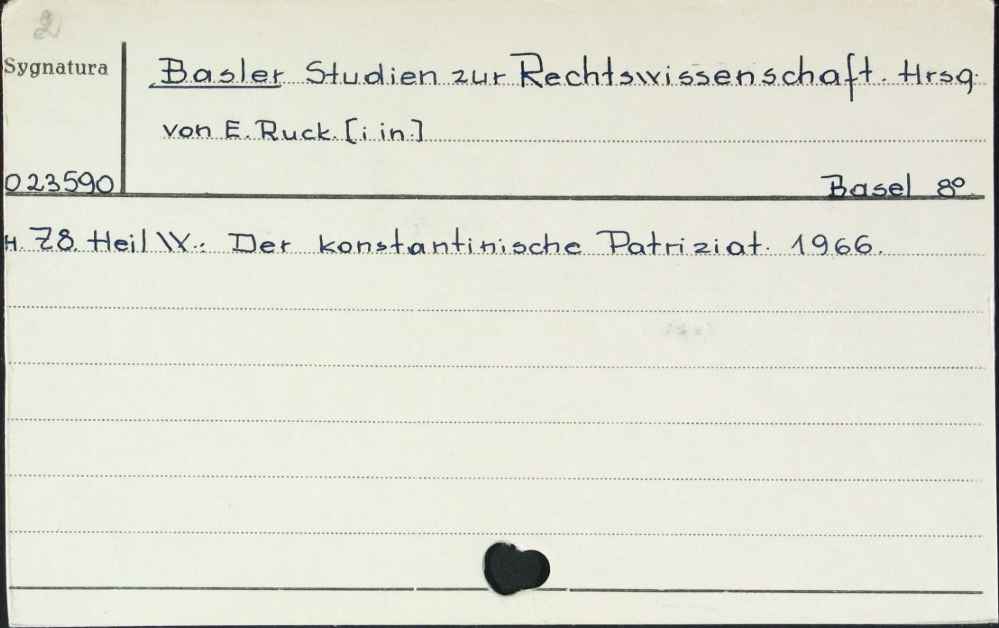 2
Sygnatura
Basler Studien zur Rechtswissenschaft. Hrsg.
von E. Ruck. [i in.]
023590
Basel 8º.
H. 78. Heil W.: Der konstantinische Patriziat. 1966.